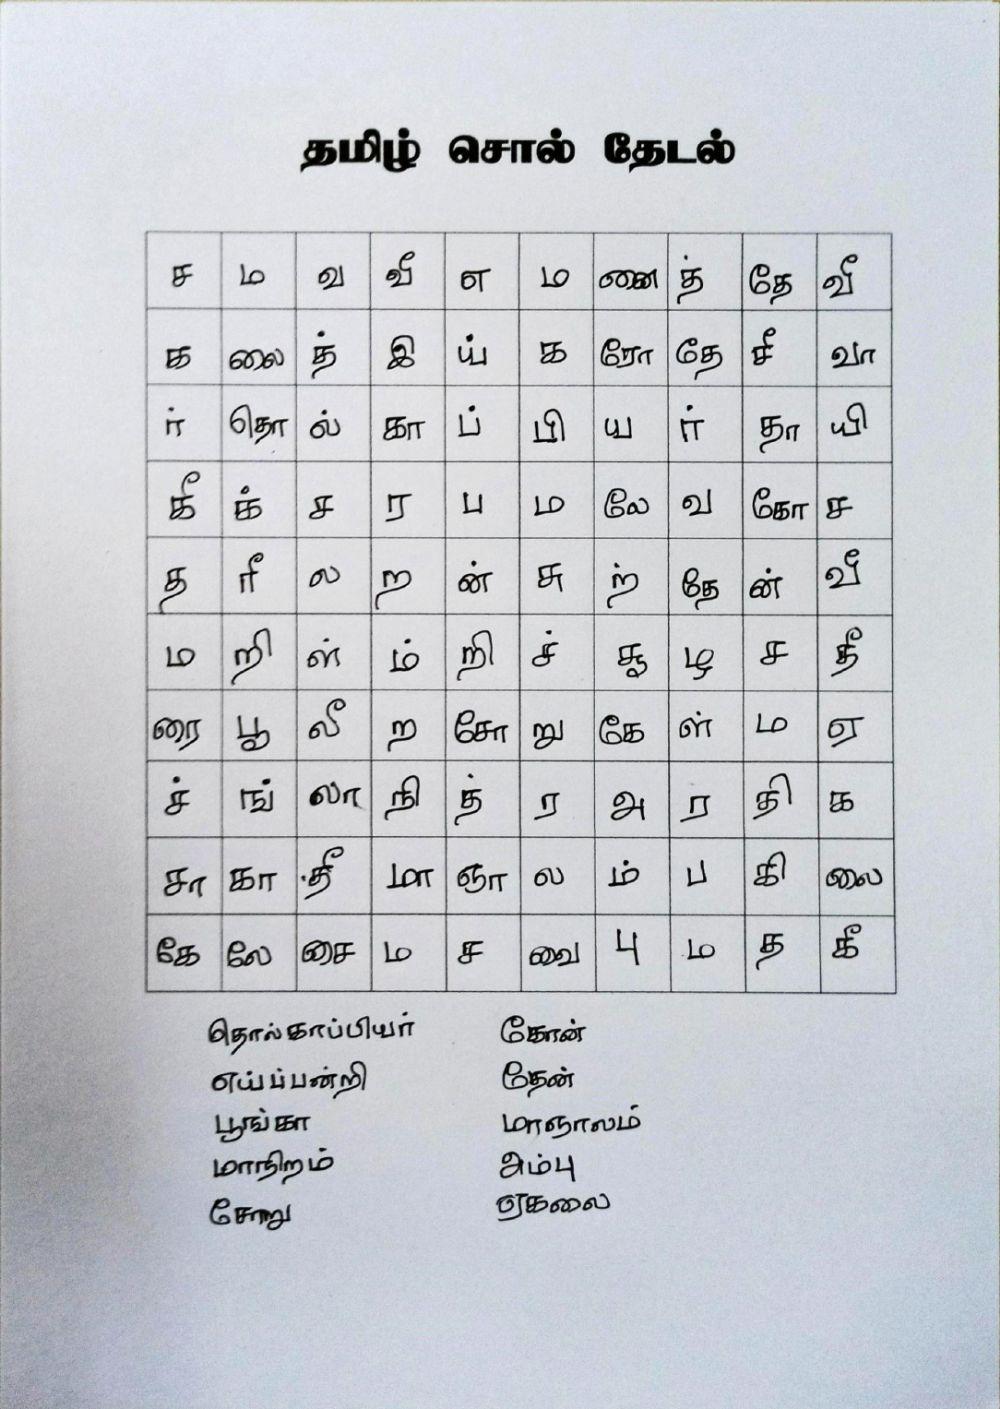 தமிழ் சொல் தேடல்
ச ம வ வீ எ ம னை த் தே வீ
க லை த் இ ய் க ரோ தே சீ வா
ர் தொ ல் கா ப் பி ய ர் தா யி
கீ க் ச ர ப ம லே வ கோ ச
த ரீ ல ற ன் சு ற் தே ன் வீ
ம றி ள் ம் றி ச் சூ ழ ச தீ
ரை பூ லீ ற சோ று கே ள் ம ஏ
ச் ங் லா நி த் ர அ ர தி க
சா கா தீ மா ஞா ல ம் ப கி லை
கே லே சை ம ச வை பு ம த கீ
தொல்காப்பியர் கோன்
எய்ப்பன்றி தேன்
பூங்கா மாஞாலம்
மாநிறம் அம்பு
சோறு ஏகலை